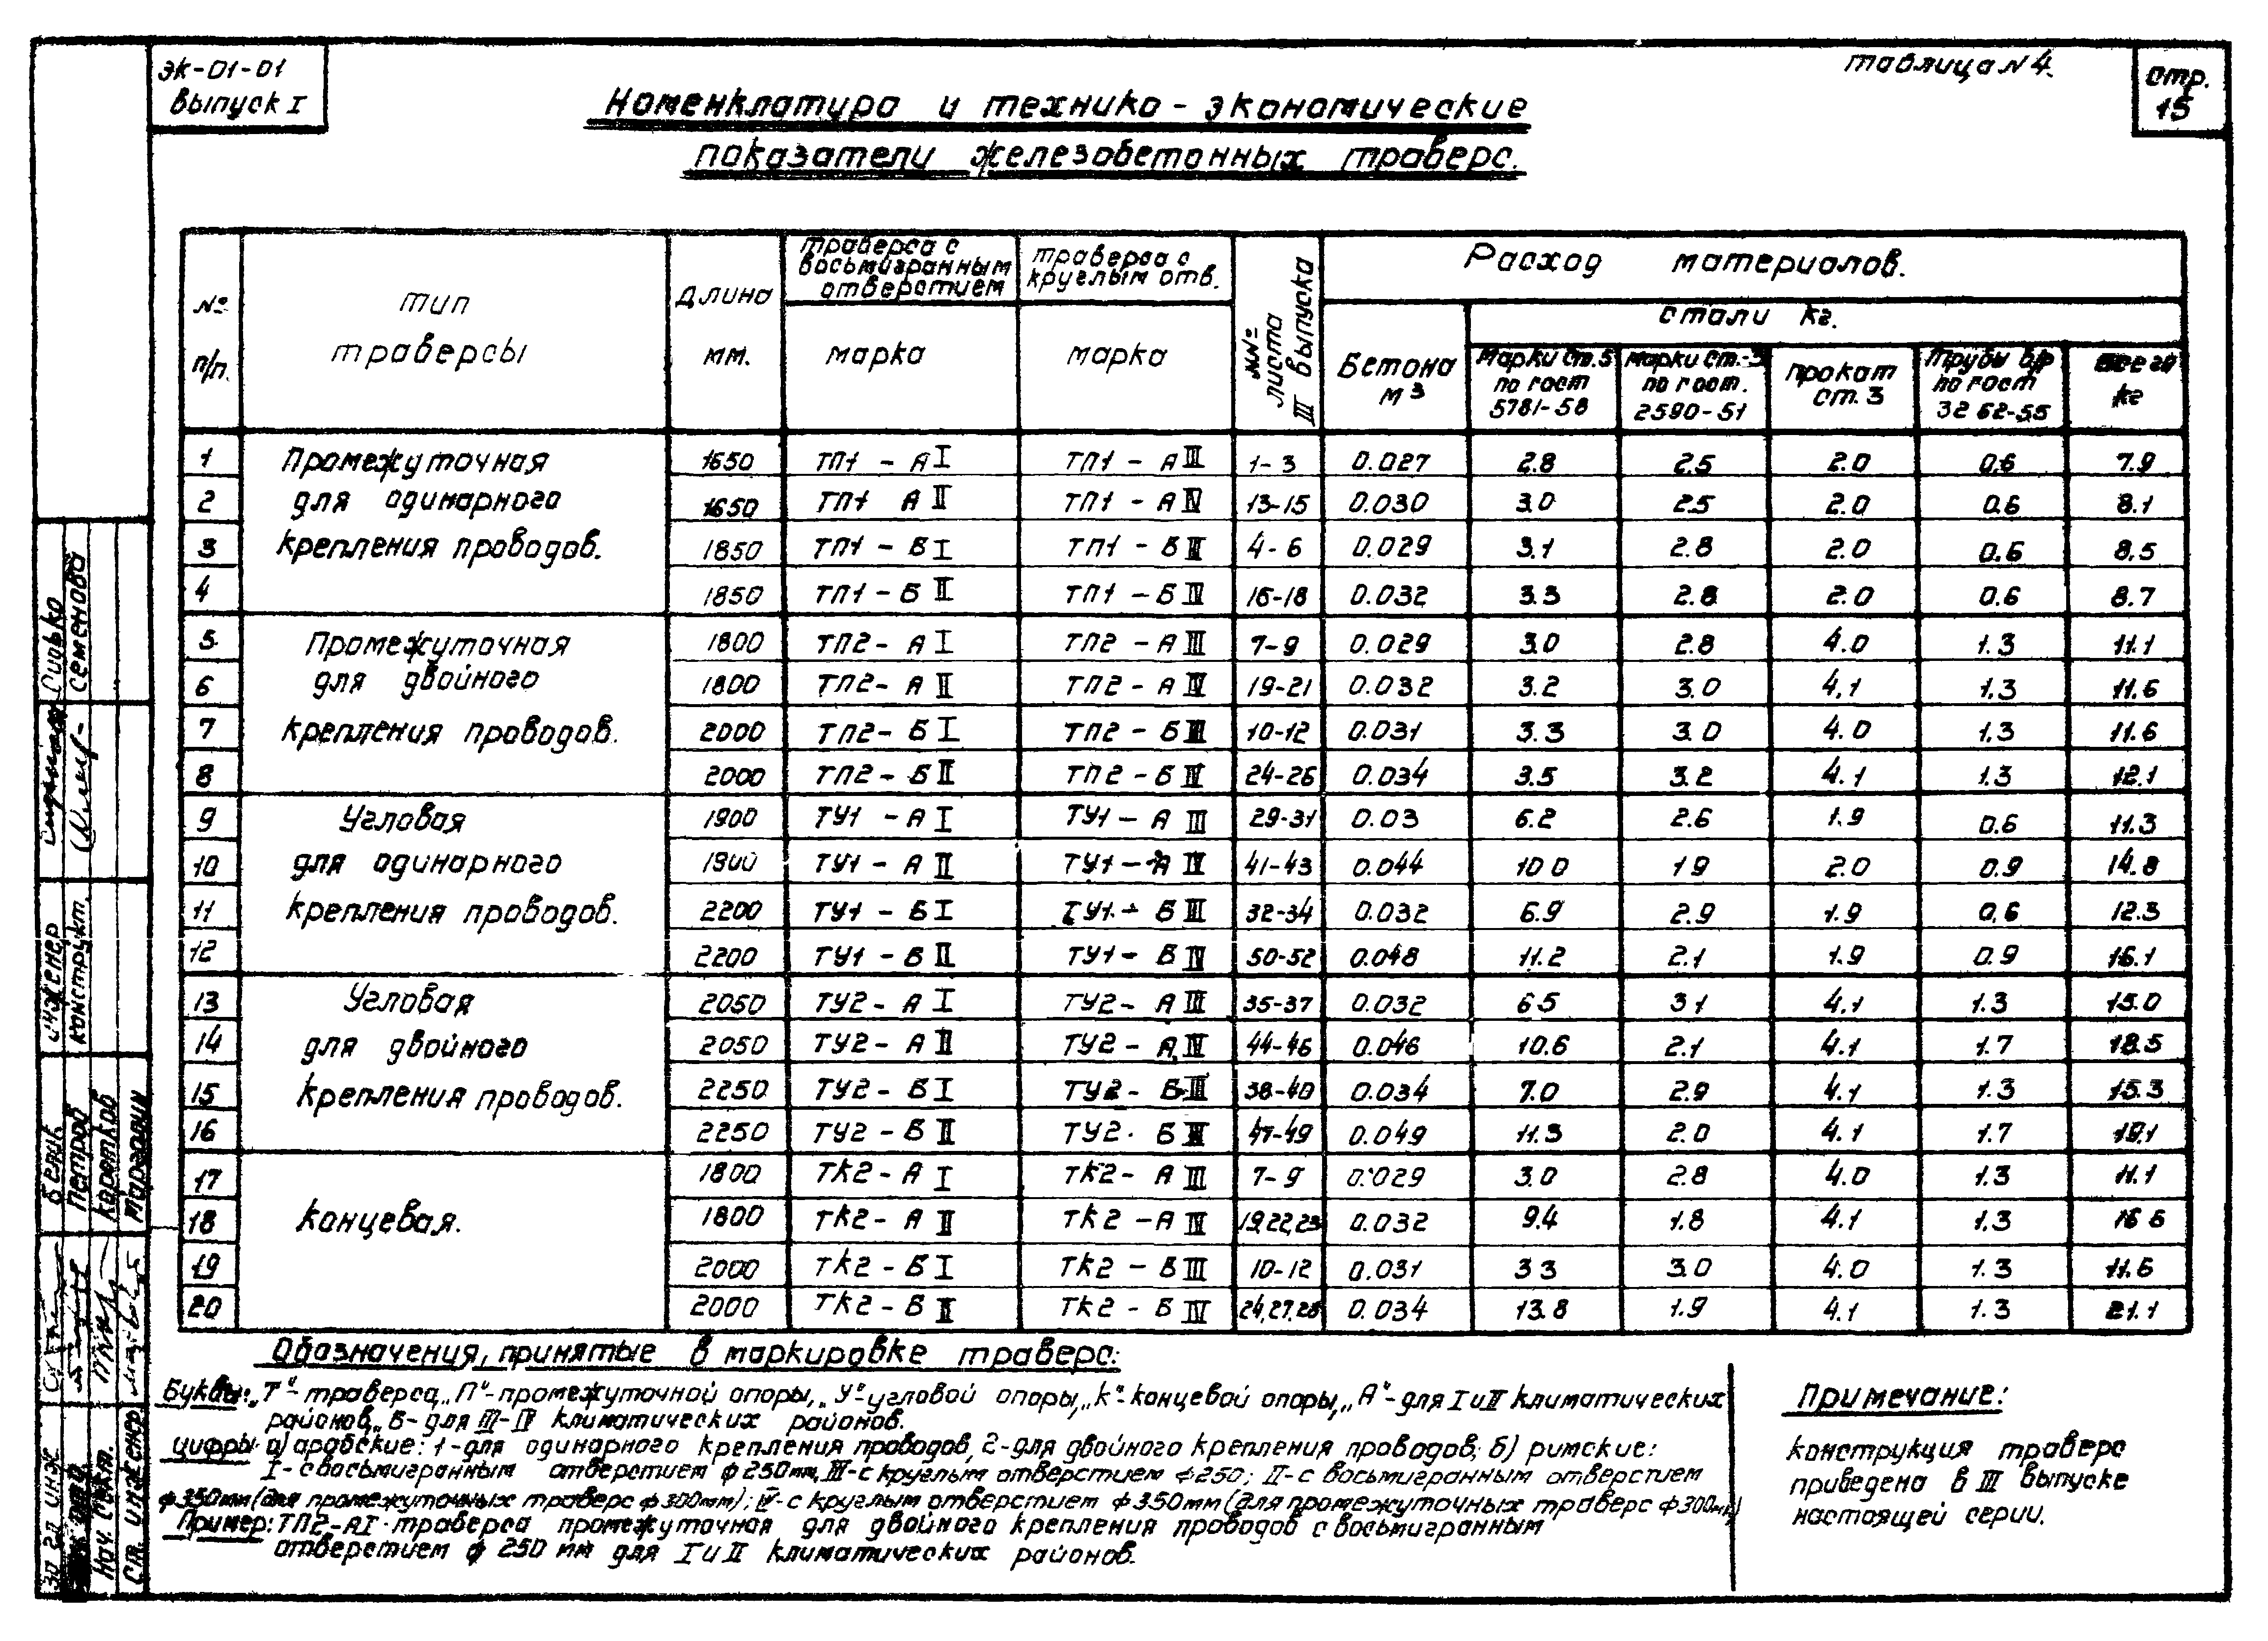 ЭК-01-01
выпуск I
таблица N 4.
стр.
15
Номенклатура и технико-экономические
показатели железобетонных траверс.
№ п/п.
тип траверсы
Длина мм.
траверса с восьмигранным отверстием
марка
траверса с круглым отв.
марка
№№ листа III выпуска
Расход материалов.
Бетона м³
стали кг.
Марки ст.5 по гост 5781-58
Марки ст.-3 по гост. 2590-51
прокат ст.3
Трубы в/г по гост 3262-55
всего кг
Промежуточная
для одинарного
крепления проводов.
1 1650 ТП1 - А I ТП1 - А III 1-3 0.027 2.8 2.5 2.0 0.6 7.9
2 1650 ТП1 А II ТП1 - А IV 13-15 0.030 3.0 2.5 2.0 0.6 8.1
3 1850 ТП1 - Б I ТП1 - Б III 4-6 0.029 3.1 2.8 2.0 0.6 8.5
4 1850 ТП1 - Б II ТП1 - Б IV 16-18 0.032 3.3 2.8 2.0 0.6 8.7
Промежуточная
для двойного
крепления проводов.
5 1800 ТП2 - А I ТП2 - А III 7-9 0.029 3.0 2.8 4.0 1.3 11.1
6 1800 ТП2 - А II ТП2 - А IV 19-21 0.032 3.2 3.0 4.1 1.3 11.6
7 2000 ТП2 - Б I ТП2 - Б III 10-12 0.031 3.3 3.0 4.0 1.3 11.6
8 2000 ТП2 - Б II ТП2 - Б IV 24-26 0.034 3.5 3.2 4.1 1.3 12.1
Угловая
для одинарного
крепления проводов.
9 1900 ТУ1 - А I ТУ1 - А III 29-31 0.03 6.2 2.6 1.9 0.6 11.3
10 1900 ТУ1 - А II ТУ1 - А IV 41-43 0.044 10 0 1 9 2.0 0.9 14.8
11 2200 ТУ1 - Б I ТУ1 - Б III 32-34 0.032 6.9 2.9 1.9 0.6 12.3
12 2200 ТУ1 - Б II ТУ1 - Б IV 50-52 0.048 11.2 2.1 1.9 0.9 16.1
Угловая
для двойного
крепления проводов.
13 2050 ТУ2 - А I ТУ2 - А III 35-37 0.032 6 5 3 1 4.1 1.3 15.0
14 2050 ТУ2 - А II ТУ2 - А IV 44-46 0.046 10.6 2.1 4.1 1.7 18.5
15 2250 ТУ2 - Б I ТУ2 - Б III 38-40 0.034 7.0 2.9 4.1 1.3 15.3
16 2250 ТУ2 - Б II ТУ2 - Б 47-49 0.049 11.3 2.0 4.1 1.7 19.1
концевая.
17 1800 ТК2 - А I ТК2 - А III 7-9 0.029 3.0 2.8 4.0 1.3 11.1
18 1800 ТК2 - А II ТК2 - А IV 19,22,23 0.032 9.4 1.8 4.1 1.3 16 6
19 2000 ТК2 - Б I ТК2 - Б III 10-12 0.031 3 3 3.0 4.0 1.3 11.6
20 2000 ТК2 - Б II ТК2 - Б IV 24,27,28 0.034 13.8 1.9 4.1 1.3 21.1
Обозначения, принятые в маркировке траверс:
Буквы: „Т"-траверса, „П"-промежуточной опоры, „У"-угловой опоры, „К"-концевой опоры, „А"-для I и II климатических
районов, „Б-для III-IV климатических районов.
цифры а) арабские: 1-для одинарного крепления проводов, 2-для двойного крепления проводов; б) римские:
I-с восьмигранным отверстием ф 250мм, III-с круглым отверстием ф 250; II-с восьмигранным отверстием
ф 350мм (для промежуточных траверс ф 300мм); IV-с круглым отверстием ф 350мм (для промежуточных траверс ф 300мм)
Пример: ТП2-АI-траверса промежуточная для двойного крепления проводов с восьмигранным
отверстием ф 250 мм для I и II климатических районов.
Примечание:
конструкция траверс
приведена в III выпуске
настоящей серии.
Семенова
инженер
конструкт.
Белик
Петров
Коротков
Марголин
Нач. сект.
Ст. инженер